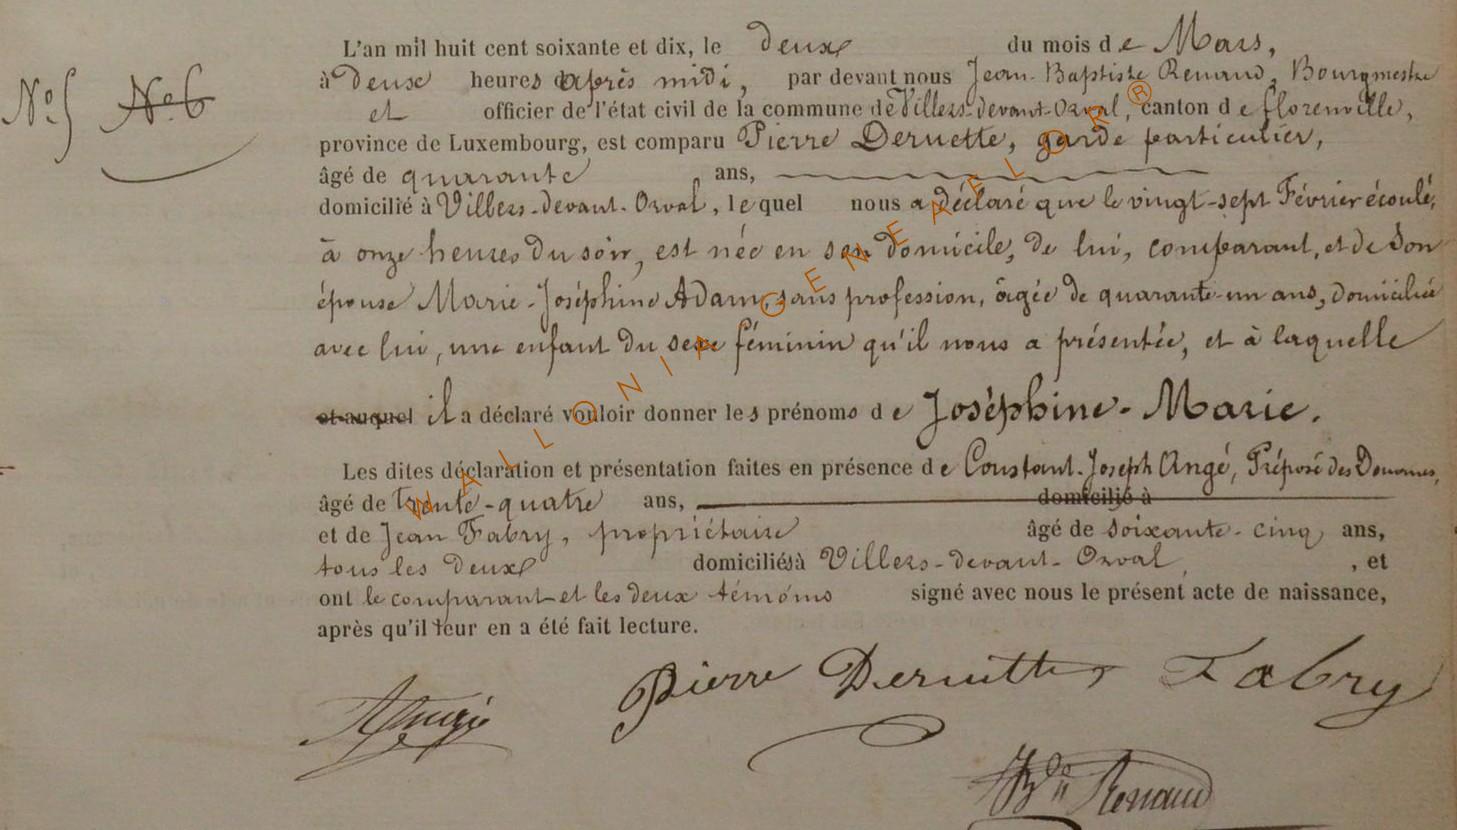 N.º 5 N.º 6
L'an mil huit cent soixante et dix, le deux du mois de Mars,
à deux heures après midi, par devant nous Jean-Baptiste Renaud, Bourgmestre
et officier de l'état civil de la commune de Villers-devant-Orval, canton de florenville,
province de Luxembourg, est comparu Pierre Deruette, garde particulier,
âgé de quarante ans,
domicilié à Villers-devant-Orval, lequel nous a déclaré que le vingt-sept Février écoulé,
à onze heures du soir, est née en son domicile, de lui, comparant, et de son
épouse Marie-Joséphine Adam, sans profession, âgée de quarante-un ans, domiciliée
avec lui, une enfant du sexe féminin qu'il nous a présentée, et à laquelle
et auquel il a déclaré vouloir donner les prénoms de Joséphine-Marie.
Les dites déclaration et présentation faites en présence de Constant-Joseph Angé, Préposé des Douanes,
âgé de trente-quatre ans, domicilié à
et de Jean Fabry, propriétaire âgé de soixante-cinq ans,
tous les deux domiciliés à Villers-devant-Orval, et
ont le comparant et les deux témoins signé avec nous le présent acte de naissance,
après qu'il leur en a été fait lecture.
Pierre Deruette Fabry
Angé
JBte Renaud
WALLONIA GENEALOR®